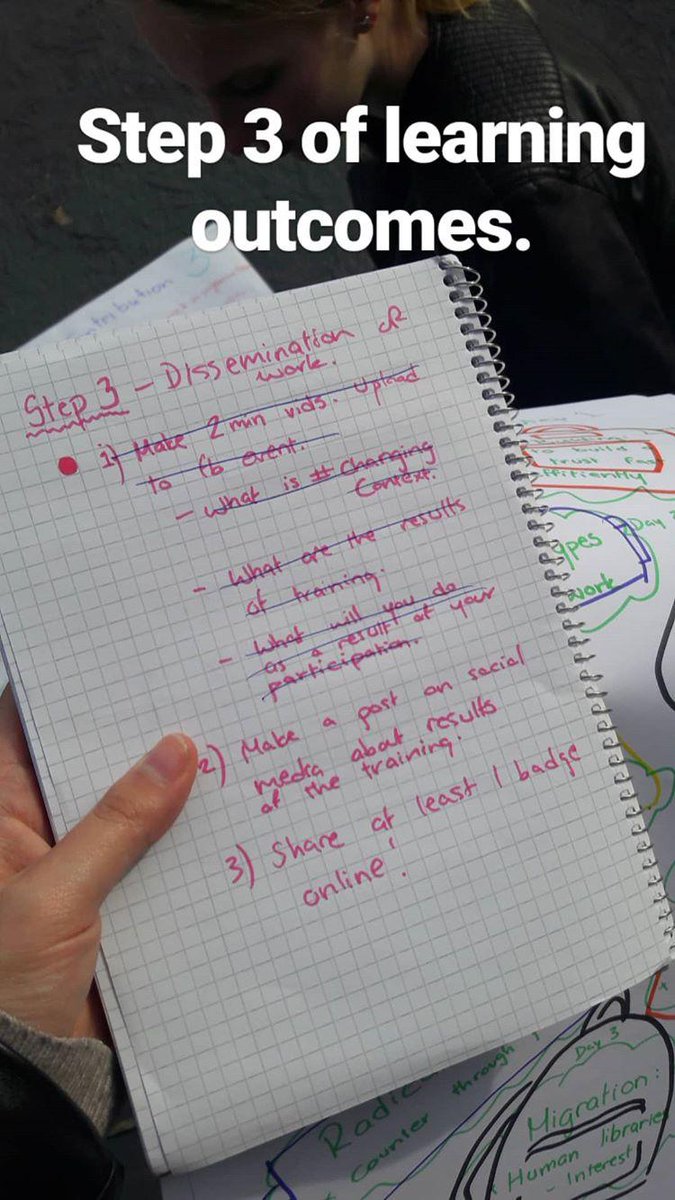 Step 3 of learning
outcomes.
Step 3 - Dissemination of
work.
1) Make 2 min vids. Upload
to fb event.
- What is #Changing
Context.
- What are the results
of training.
- What will you do
as a result of your
participation.
2) Make a post on social
media about results
of the training!
3) Share at least 1 badge
online!
to build
trust
Day
work
Day 3
Migration:
Human libraries
- Interest
counter through